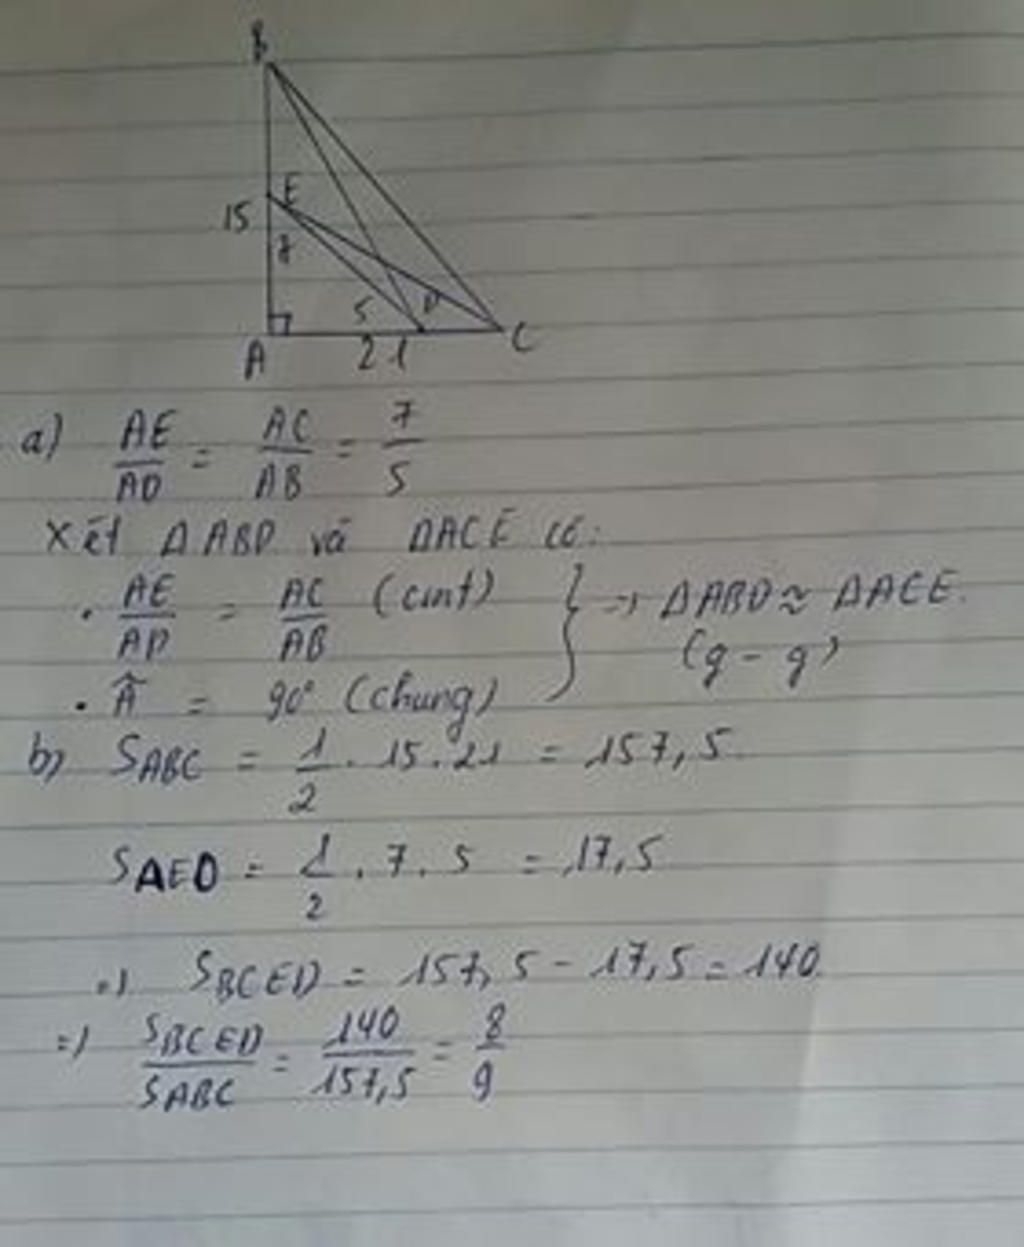 B
E
15
7
5
D
A
21
C
a) AE/AD = AC/AB = 7/5
Xét ΔABD và ΔACE có:
· AE/AD = AC/AB (cmt)
} => ΔABD ≈ ΔACE.
(g - g)
· Â = 90° (chung)
b) SABC = 1/2 . 15 . 21 = 157,5.
SAED = 1/2 . 7 . 5 = 17,5
=) SBCED = 157,5 - 17,5 = 140.
=) SBCED/SABC = 140/157,5 = 8/9